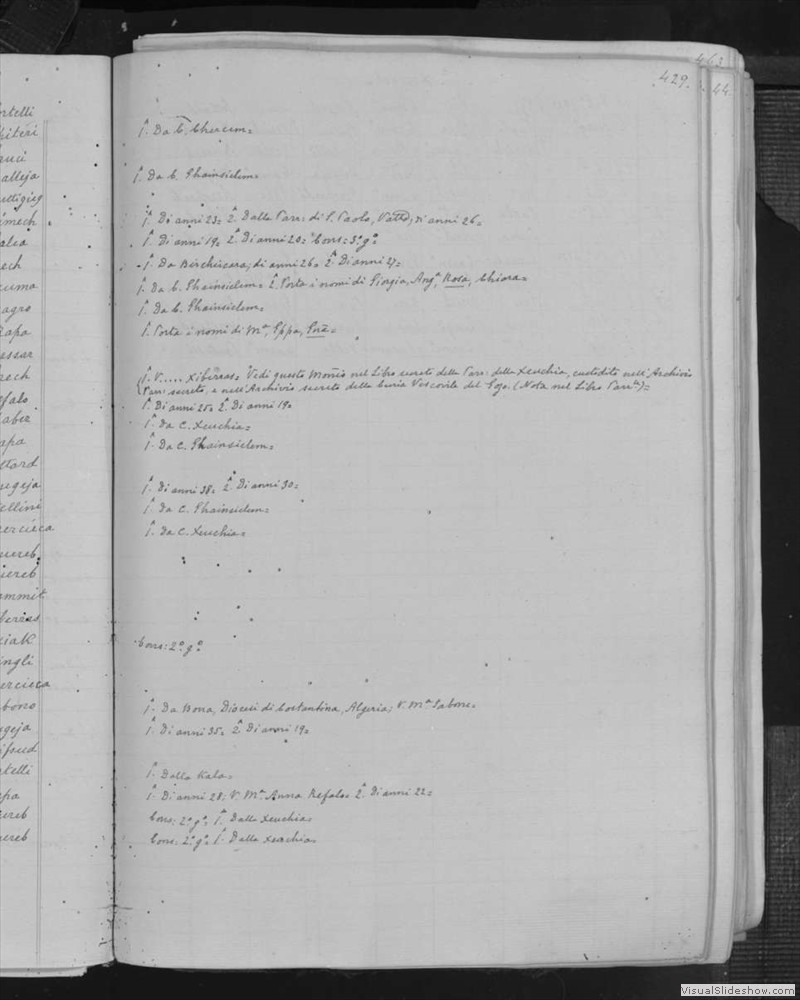 rtelli
piteri
ruci
alleja
uttigieg
imech
alea
ech
cuma
agro
Rapa
essar
rech
efalo
aber
apa
ttard
ugeja
ellini
ercieca
uereb
uereb
ammit
bereas
iak
ingli
ercieca
bono
ugeja
ifsud
rtelli
apa
ereb
ereb
463
429. 44
1ª. Da C. Chercem=
1ª. Da C. Ghainsielem=
1ª. Di anni 23= 2ª. Dalla Parr: di S. Paolo, Valtta, di anni 26=
1ª. Di anni 19= 2ª. Di anni 20= Cons: 3º gº
1ª. Da Birchircara, di anni 26= 2ª. Di anni 21=
1ª. Da C. Ghainsielem= 2ª. Porta i nomi di Giorgia, Angª, Rosa, Chiara=
1ª. Da C. Ghainsielem=
1ª. Porta i nomi di Mª, Gppa,
1ª. V..... Xiberras= Vedi questo nel Libro secreto della Parr: della Xeuchia, custodito nell'Archivio
Parr: secreto, e nell'Archivio secreto della Curia Vescovile del Gozo. (Nota nel Libro Parrˡᵉ)=
1ª. Di anni 25= 2ª. Di anni 19=
1ª. Da C. Xeuchia=
1ª. Da C. Ghainsielem=
1ª. Di anni 38= 2ª. Di anni 30=
1ª. Da C. Ghainsielem=
1ª. Da C. Xeuchia=
Cons: 2º gº
1ª. Da Bona, Diocesi di Costantina, Algeria; V. Mª Sabone=
1ª. Di anni 35= 2ª. Di anni 19=
1ª. Dalla Kala=
1ª. Di anni 28; V. Mª Anna Refalo= 2ª. Di anni 22=
Cons: 2º gº 1ª. Dalla Xeuchia=
Cons: 2º gº 1ª. Dalla Xeuchia=
VisualSlideshow.com